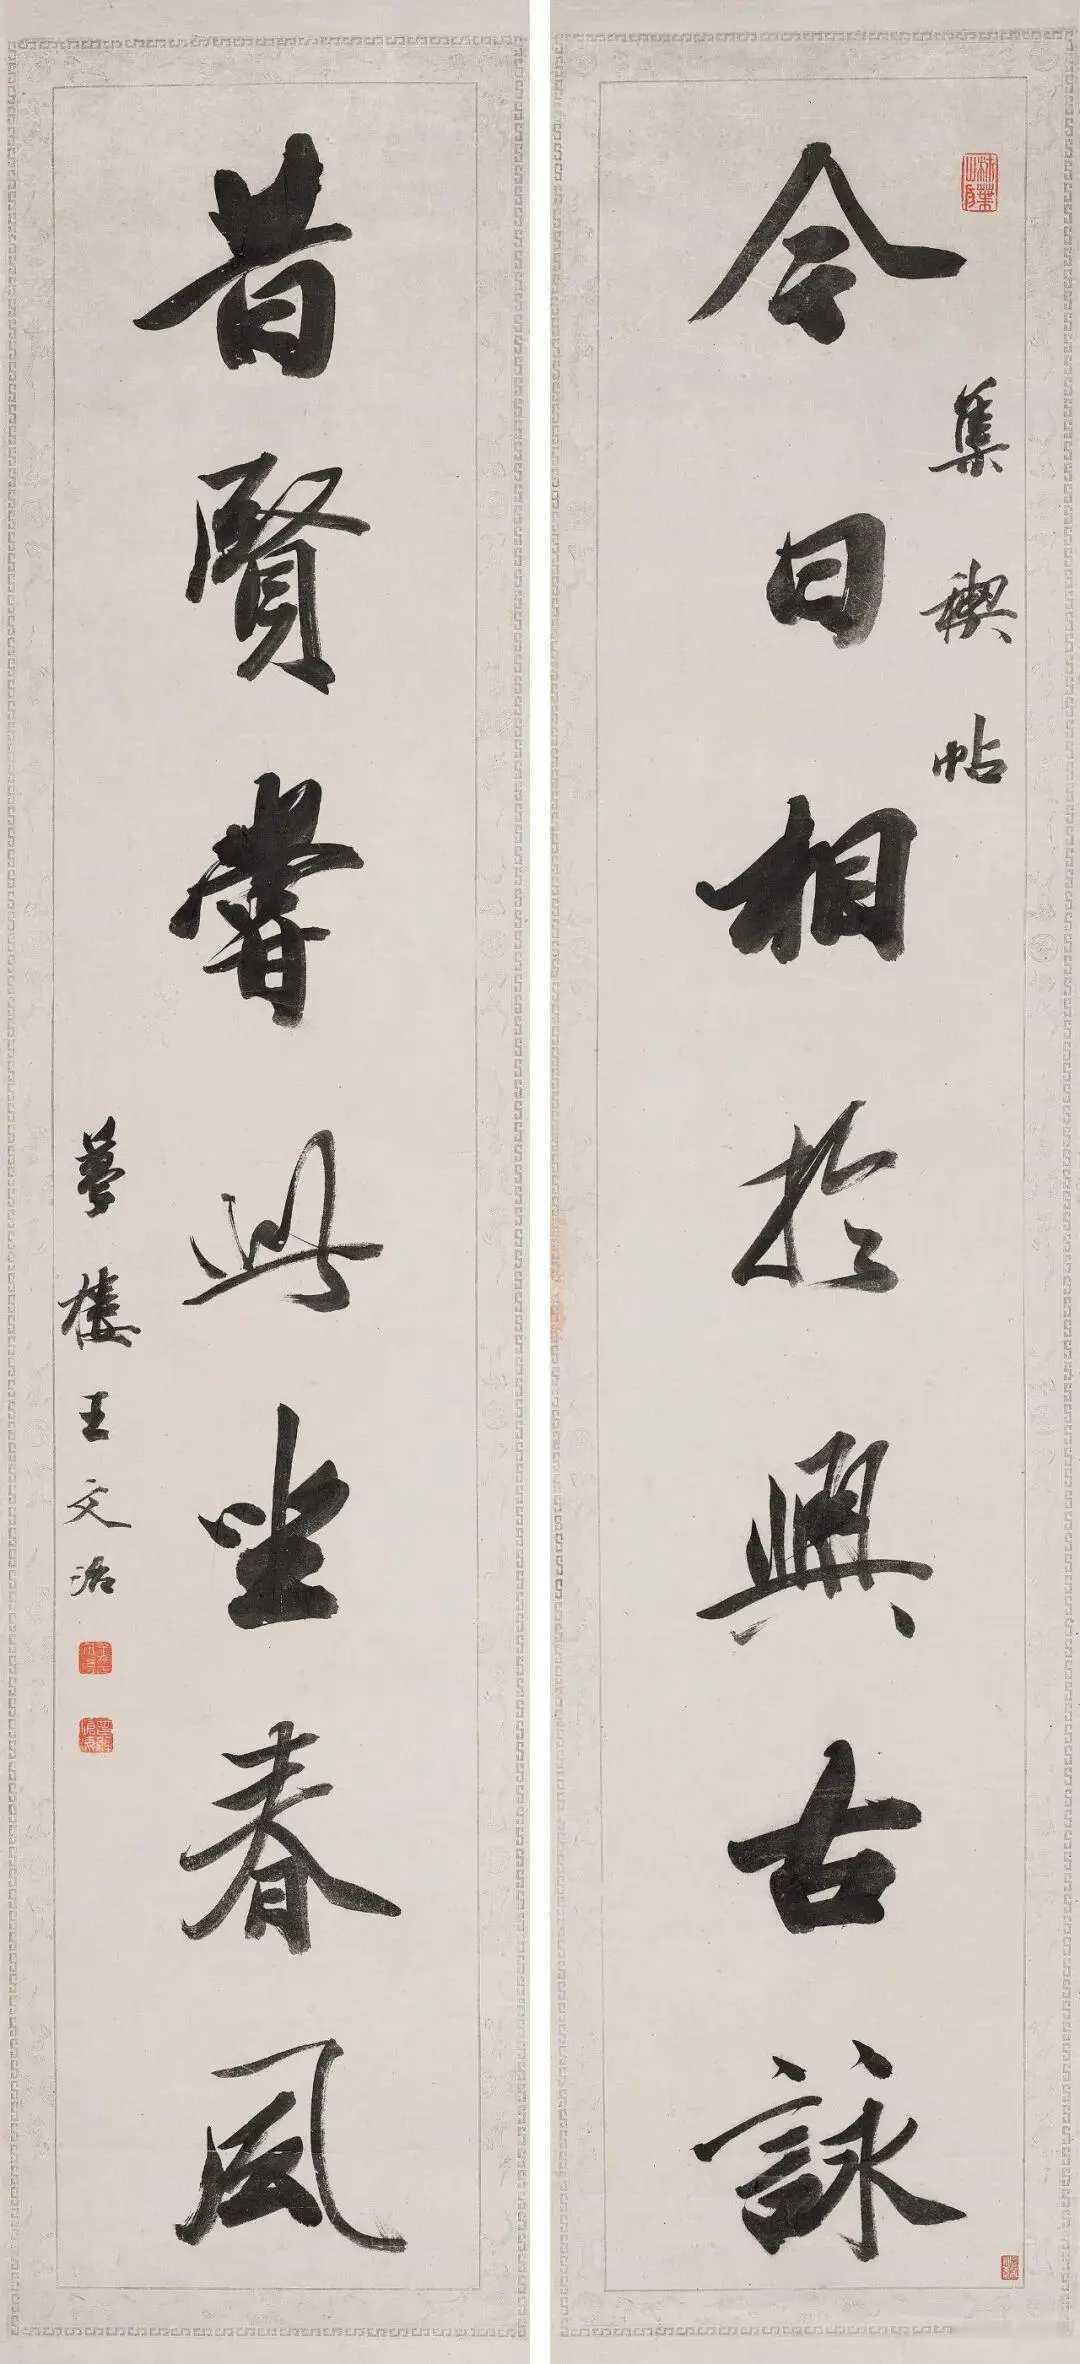 今日相於興古詠
集禊帖
昔賢嘗此坐春風
夢樓王文治